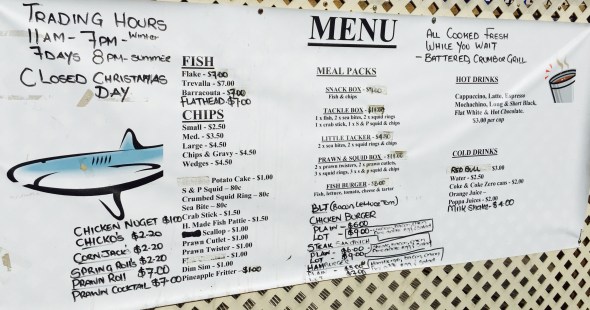 TRADING HOURS
11AM - 7PM - Winter
7DAYS 8PM - SUMMER
CLOSED CHRISTMAS
DAY
CHICKEN NUGET $1.00
CHICKO'S $2.20
CORN JACK $2.20
SPRING ROLLS $2.20
PRAWN ROLL $7.00
PRAWN COCKTAIL $7.00
FISH
Flake - $7.00
Trevalla - $7.00
Barracouta - $7.00
FLATHEAD - $7.00
CHIPS
Small - $2.50
Med. - $3.50
Large - $4.50
Chips & Gravy - $4.50
Wedges - $4.50
Potato Cake - $1.00
S & P Squid - 80c
Crumbed Squid Ring - 80c
Sea Bite - 80c
Crab Stick - $1.50
H. Made Fish Pattie - $1.50
Scallop - $1.00
Prawn Cutlet - $1.00
Prawn Twister - $1.00
- $1.00
Dim Sim - $1.00
Pineapple Fritter - $1.00
MENU
MEAL PACKS
SNACK BOX -
Fish & chips
TACKLE BOX -
1 x fish, 2 x sea bites, 2 x squid rings
1 x crab stick, 1 x S & P squid & chips
LITTLE TACKER -
2 x sea bites, 2 x squid rings & chips
PRAWN & SQUID BOX -
2 x prawn twisters, 2 x prawn cutlets,
3 x squid rings, 3 x s & p squid & chips
FISH BURGER -
Fish, lettuce, tomato, cheese & tarter
BLT (Bacon Lettuce Tom)
CHICKEN BURGER
PLAIN - $6.00
LOT - $9.00
STEAK SANDWICH
PLAIN - $6.00
LOT $9.00
HAMBURGER
ALL COOKED FRESH
WHILE YOU WAIT
- BATTERED, CRUMB OR GRILL
HOT DRINKS
Cappuccino, Latte, Espresso
Mochachino, Long & Short Black,
Flat White & Hot Chocolate.
$3.00 per cup
COLD DRINKS
RED BULL $3.00
Water - $2.50
Coke & Coke Zero cans - $2.00
Orange Juice -
Poppa Juices - $2.00
MILK SHAKE - $4.00